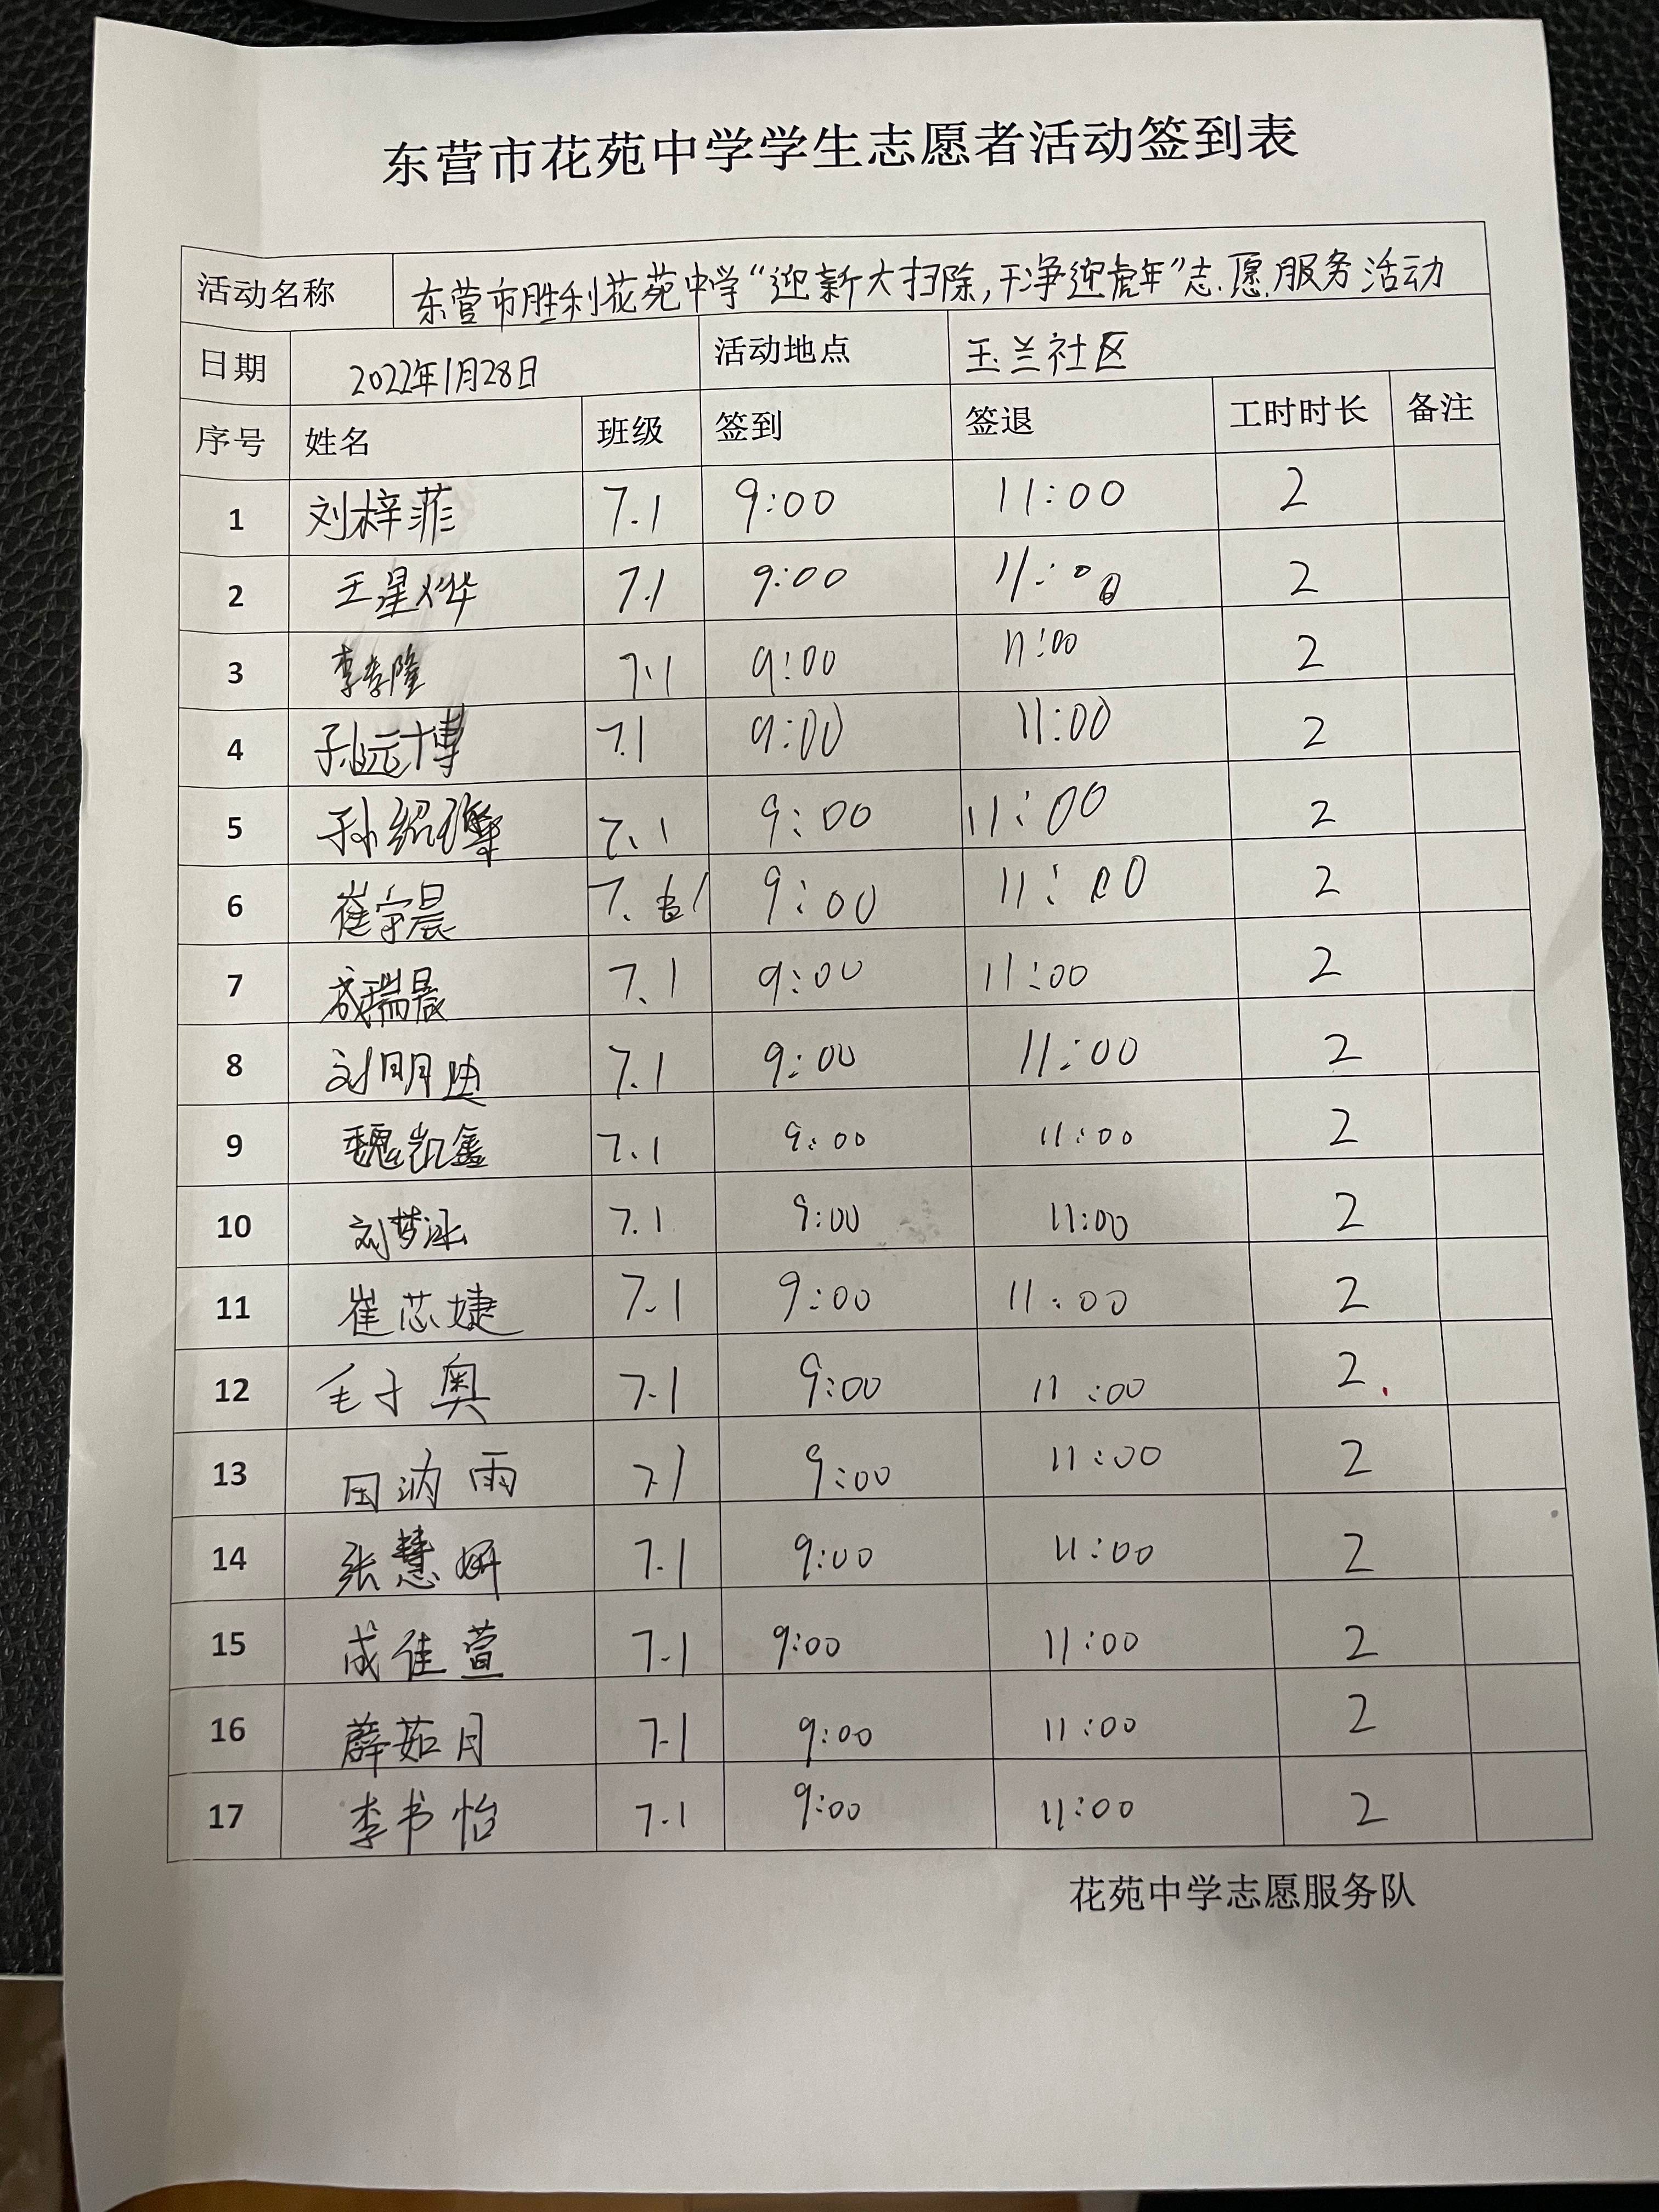 东营市花苑中学学生志愿者活动签到表
活动名称 东营市胜利花苑中学“迎新大扫除,干净迎虎年”志愿服务活动
日期 2022年1月28日 活动地点 玉兰社区
序号 姓名 班级 签到 签退 工时时长 备注
1 刘梓菲 7.1 9:00 11:00 2
2 王星烨 7.1 9:00 11:00 2
3 李孝隆 7.1 9:00 11:00 2
4 孙远博 7.1 9:00 11:00 2
5 孙绍 7.1 9:00 11:00 2
6 崔宇晨 7.1 9:00 11:00 2
7 成瑞晨 7.1 9:00 11:00 2
8 刘明迪 7.1 9:00 11:00 2
9 魏凯鑫 7.1 9:00 11:00 2
10 刘梦冰 7.1 9:00 11:00 2
11 崔芯婕 7.1 9:00 11:00 2
12 毛子奥 7.1 9:00 11:00 2
13 雨 7.1 9:00 11:00 2
14 张慧妍 7.1 9:00 11:00 2
15 成佳萱 7.1 9:00 11:00 2
16 薛茹月 7.1 9:00 11:00 2
17 李书怡 7.1 9:00 11:00 2
花苑中学志愿服务队